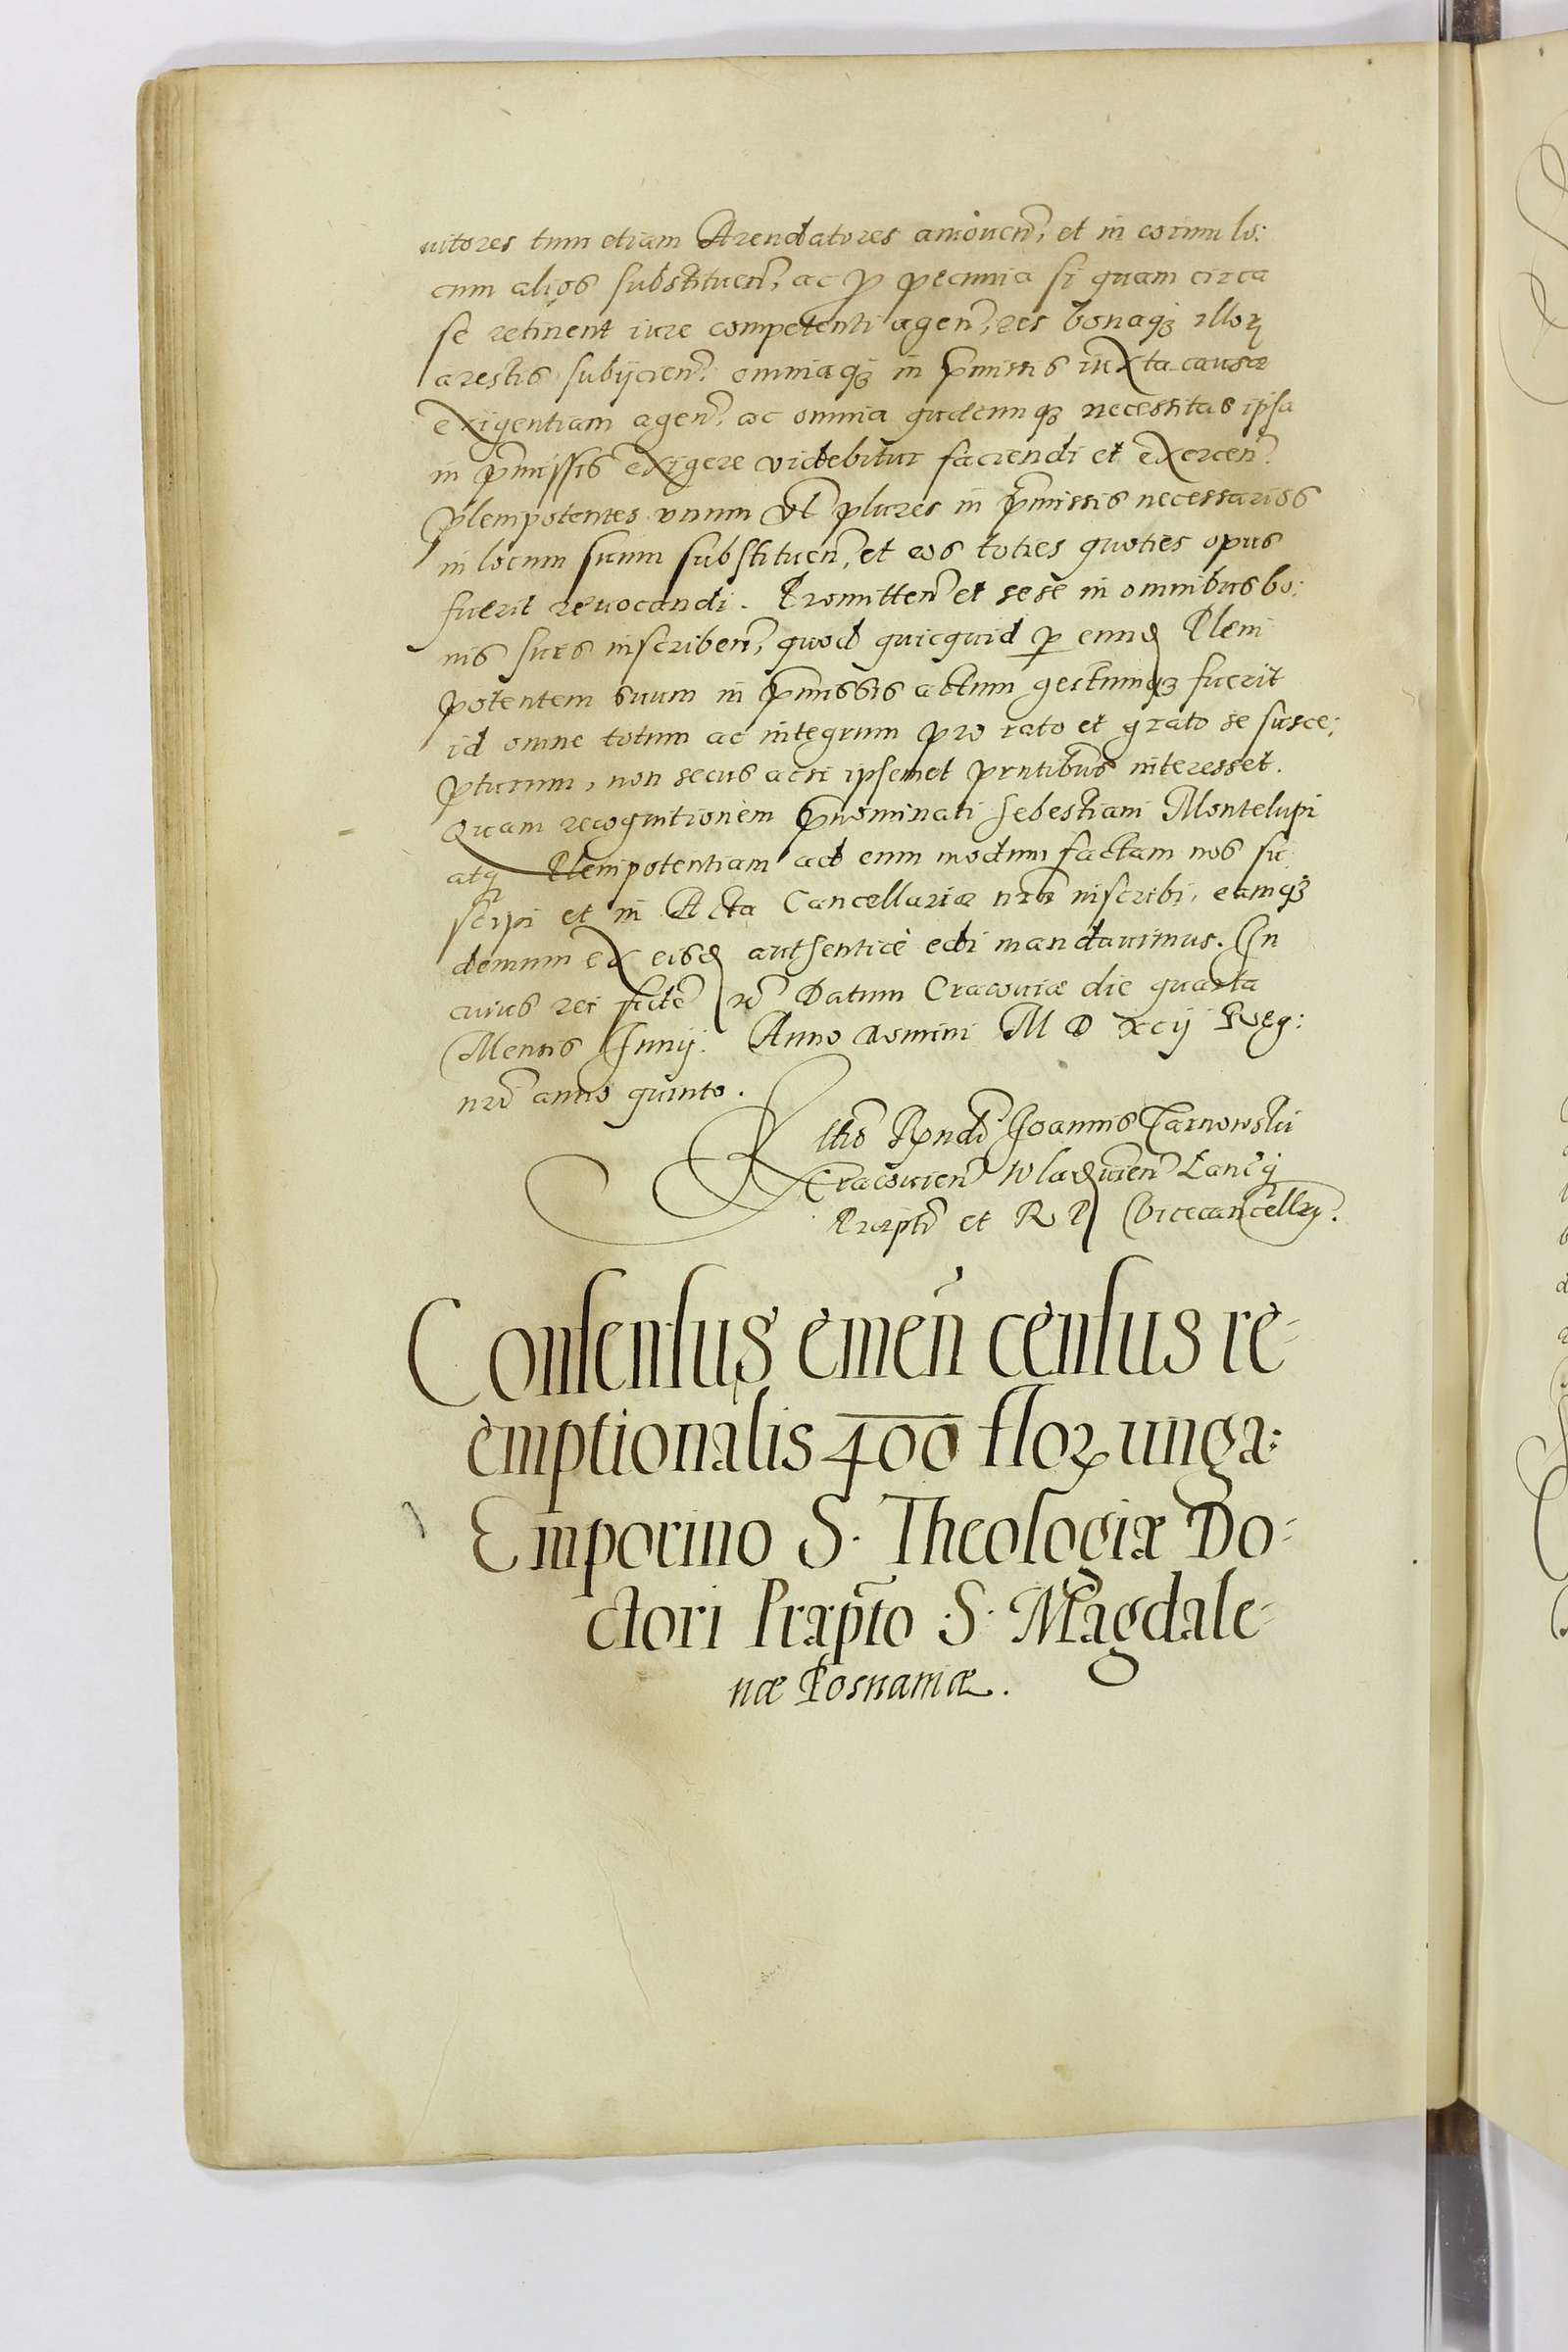 uitores tum etiam Arendatores amouen̄, et in eorum lo:
cum alios substituen̄, ac ꝓ pecunia si quam circa
se retinent iure competenti agen̄, res bonaqꝫ illorꝝ
arestis subijcien̄. omniaqꝫ in p̄missis iuxta causæ
exigentiam agen̄. ac omnia qudcunqꝫ necessitas ipsa
in p̄missis exigere videbitur faciendi et exercen̄.
Plenipotentes vnum vl̄ plures in p̄missis necessarios
in locum suum substituen̄, et eos toties quoties opus
fuerit reuocandi. Promitten̄ et sese in omnibus bo:
nis suis inscriben̄, quod quicquid ꝑ eund Pleni
potentem suum in p̄missis actum gestumqꝫ fuerit
id omne totum ac integrum pro rato et grato se susce:
pturum, non secus acsi ipsemet pn̄tibus interesset.
Quam recognitionem p̄nominati Sebestiani Montelupi
atq Plenipotentiam ad eum modum factam nos su
scipi et in Acta Cancellariæ nr̄æ inscribi, eamqꝫ
demum ex eisd authenticè edi mandauimus. In
cuius rei fidē rc̄ Datum Cracouiæ die quarta
Mensis Junij. Anno Domini M D xcij Reg:
nr̄i anno quinto.
Rltio Rn̄di Joannis Tarnowskii
Cracouien̄ Wladislauien̄ Lancī
Præpti et R P Vicecancellrij.
Consensus emen̄ census re-
emptionalis 400 florꝝ unga:
Emporino S. Theologiæ Do-
ctori Præpt̄o S. Magdale-
næ Posnaniæ.